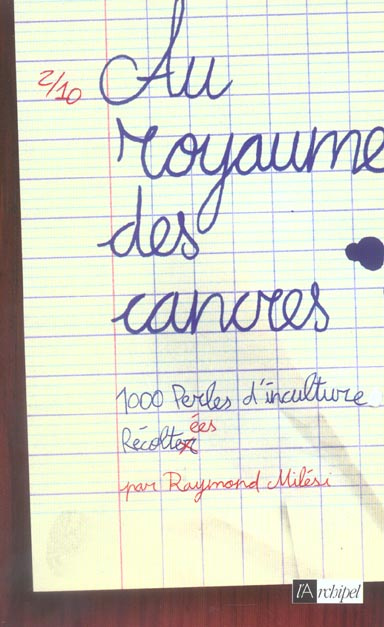 2/10
Au
royaume
des
cancres
1000 Perles d'inculture
ées
Récolter
par Raymond Milési
l'Archipel